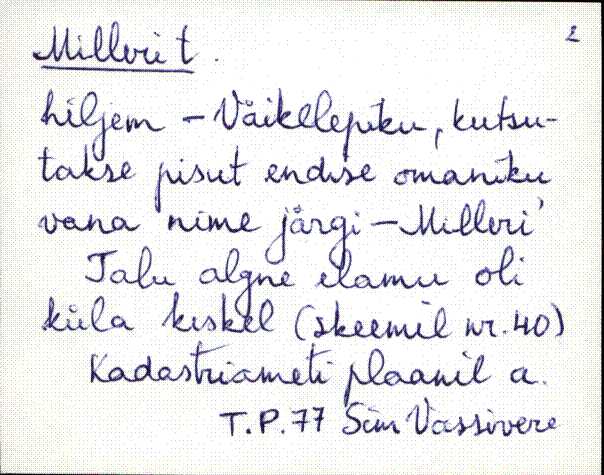 2
Milleri t.
hiljem - Väikelepiku, kutsu-
takse pisut endise omaniku
vana nime järgi - Milleri'
Talu algne elamu oli
küla keskel (skeemil nr. 40)
Kadastriameti plaanil a.
T.P. 77 Siim Vassivere